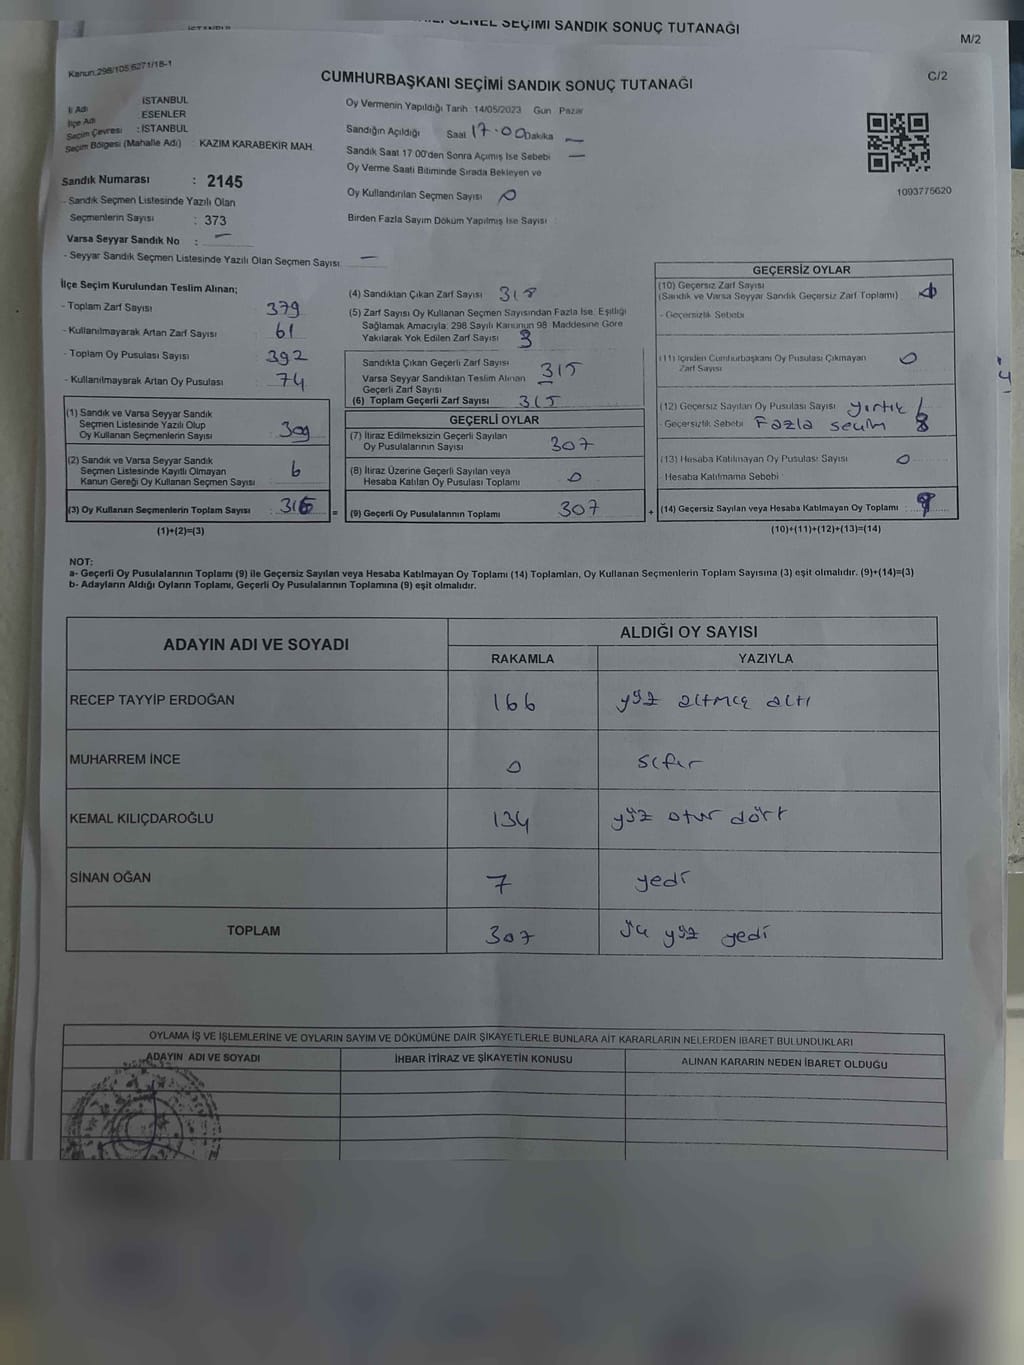 GENEL SEÇİMİ SANDIK SONUÇ TUTANAĞI
M/2
Kanun:298/105,6271/18-1
CUMHURBAŞKANI SEÇİMİ SANDIK SONUÇ TUTANAĞI
C/2
İl Adı : İSTANBUL
İlçe Adı : ESENLER
Seçim Çevresi : İSTANBUL
Seçim Bölgesi (Mahalle Adı) : KAZIM KARABEKİR MAH.
Sandık Numarası : 2145
- Sandık Seçmen Listesinde Yazılı Olan
Seçmenlerin Sayısı : 373
Varsa Seyyar Sandık No : –
- Seyyar Sandık Seçmen Listesinde Yazılı Olan Seçmen Sayısı: –
Oy Vermenin Yapıldığı Tarih : 14/05/2023 Gün : Pazar
Sandığın Açıldığı Saat 17.00 Dakika –
Sandık Saat 17:00'den Sonra Açılmış İse Sebebi –
Oy Verme Saati Bitiminde Sırada Bekleyen ve
Oy Kullandırılan Seçmen Sayısı 0
Birden Fazla Sayım Döküm Yapılmış İse Sayısı :
1093775620
İlçe Seçim Kurulundan Teslim Alınan;
- Toplam Zarf Sayısı : 379
- Kullanılmayarak Artan Zarf Sayısı : 61
- Toplam Oy Pusulası Sayısı : 392
- Kullanılmayarak Artan Oy Pusulası : 74
(1) Sandık ve Varsa Seyyar Sandık
Seçmen Listesinde Yazılı Olup
Oy Kullanan Seçmenlerin Sayısı : 309
(2) Sandık ve Varsa Seyyar Sandık
Seçmen Listesinde Kayıtlı Olmayan
Kanun Gereği Oy Kullanan Seçmen Sayısı : 6
(3) Oy Kullanan Seçmenlerin Toplam Sayısı :
(1)+(2)=(3)
(4) Sandıktan Çıkan Zarf Sayısı : 318
(5) Zarf Sayısı Oy Kullanan Seçmen Sayısından Fazla İse, Eşitliği
Sağlamak Amacıyla, 298 Sayılı Kanunun 98. Maddesine Göre
Yakılarak Yok Edilen Zarf Sayısı : 3
Sandıkta Çıkan Geçerli Zarf Sayısı : 315
Varsa Seyyar Sandıktan Teslim Alınan
Geçerli Zarf Sayısı : –
(6) Toplam Geçerli Zarf Sayısı : 315
GEÇERLİ OYLAR
(7) İtiraz Edilmeksizin Geçerli Sayılan
Oy Pusulalarının Sayısı : 307
(8) İtiraz Üzerine Geçerli Sayılan veya
Hesaba Katılan Oy Pusulası Toplamı : 0
= (9) Geçerli Oy Pusulalarının Toplamı : 307
GEÇERSİZ OYLAR
(10) Geçersiz Zarf Sayısı
(Sandık ve Varsa Seyyar Sandık Geçersiz Zarf Toplamı)
- Geçersizlik Sebebi
(11) İçinden Cumhurbaşkanı Oy Pusulası Çıkmayan
Zarf Sayısı : 0
(12) Geçersiz Sayılan Oy Pusulası Sayısı : yırtık
- Geçersizlik Sebebi : Fazla seçim 8
(13) Hesaba Katılmayan Oy Pusulası Sayısı : 0
- Hesaba Katılmama Sebebi :
+ (14) Geçersiz Sayılan veya Hesaba Katılmayan Oy Toplamı :
(10)+(11)+(12)+(13)=(14)
NOT:
a- Geçerli Oy Pusulalarının Toplamı (9) ile Geçersiz Sayılan veya Hesaba Katılmayan Oy Toplamı (14) Toplamları, Oy Kullanan Seçmenlerin Toplam Sayısına (3) eşit olmalıdır. (9)+(14)=(3)
b- Adayların Aldığı Oyların Toplamı, Geçerli Oy Pusulalarının Toplamına (9) eşit olmalıdır.
ADAYIN ADI VE SOYADI
ALDIĞI OY SAYISI
RAKAMLA YAZIYLA
RECEP TAYYİP ERDOĞAN 166 yüz altmış altı
MUHARREM İNCE 0 sıfır
KEMAL KILIÇDAROĞLU 134 yüz otuz dört
SİNAN OĞAN 7 yedi
TOPLAM 307 üç yüz yedi
OYLAMA İŞ VE İŞLEMLERİNE VE OYLARIN SAYIM VE DÖKÜMÜNE DAİR ŞİKAYETLERLE BUNLARA AİT KARARLARIN NELERDEN İBARET BULUNDUKLARI
ADAYIN ADI VE SOYADI İHBAR İTİRAZ VE ŞİKAYETİN KONUSU ALINAN KARARIN NEDEN İBARET OLDUĞU